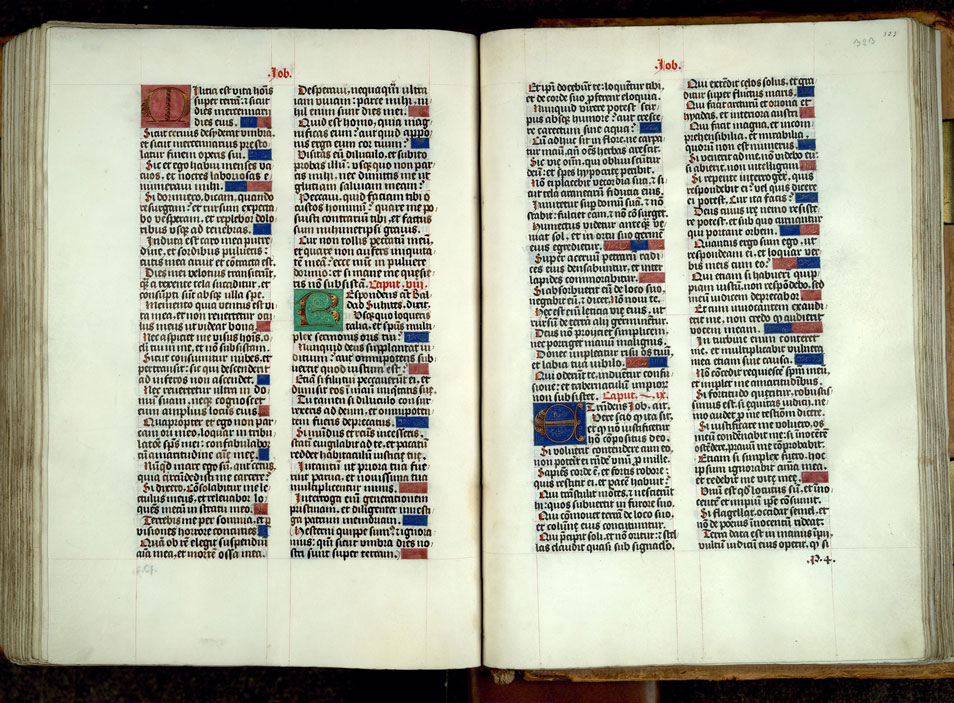 Job.
Militia est vita hoīs
super terrā: ⁊ sicut
dies mercennarii
dies eius.
Sicut ceruus desyderat vmbrā:
et sicut mercennarius presto
latur finem operis sui.
Sic et ego habui menses va
cuos, et noctes laboriosas e
numeraui mihi.
Si dormiero, dicam, quando
resurgam? et rursum expecta
bo vesperam, et replebor dolo
ribus vsq̄ ad tenebras.
Induta est caro mea putre
dine, et sordibus pulueris:
cutis mea aruit et contracta est.
Dies mei velotius transierūt,
q̄ a texente tela succiditur, et
consūpti sunt absq̄ vlla spe.
Memento quia ventus est vi
ta mea, et non reuertetur ocu
lus meus ut videat bona.
Nec aspiciet me visus hoīs, o
culi tui in me, et nō subsistam.
Sicut consumitur nubes, et
pertransit: sic qui descenderit
ad inferos non ascendet.
Nec reuertetur vltra in do
mum suam, neq̄ cognoscet
eum amplius locus eius.
Quapropter et ego non par
cam ori meo, loquar in tribu
latōe spūs mei: confabulabor
cū amaritudine aīe mee.
Nūqd mare ego sū, aut cetus,
quia circūdedisti me carcere?
Si dixero, Cōsolabitur me le
ctulus meus, et releuabor lo
quēs mecū in strato meo.
Terrebis me per somnia, et p
visiones horrore concuties.
Quā ob rē elegit suspendiū
aīa mea, et mortē ossa mea.
Desperaui, nequaq̄ vltra
iam viuam: parce mihi, ni
hil enim sunt dies mei.
Quid est homo, quia mag
nificas eum? aut quid appo
nis erga eum cor tuum?
Visitas eū diluculo, et subito
probas illū. Vsequo non par
cis mihi, nec dimittis me ut
glutiam saliuam meam?
Peccaui, quid faciam tibi o
custos hominū? quare me po
suisti contrariū tibi, et factus
sum mihimetipsi grauis.
Cur non tollis peccatū meū,
et quare non aufers iniquita
tē meā? ecce nunc in puluere
dormio: et si mane me quesie
ris nō subsistā. Caput. viij
Respondens aūt Bal
dad Suhites, dixit.
Vseq̄uo loqueris
talia, et spūs multi
plex sermonis oris tui?
Nunquid deus supplantat iu
dicium? aut omnipotens sub
uertit quod iustum est?
Etiā si filii tui peccauerūt ei, et
dimisit eos in manu iniquitatis sue.
Tu tamen si diluculo consur
rexeris ad deum, et omnipotē
tem fueris deprecatus.
Si mūdus et rectus incesseris,
stati euigilabit ad te, et pacatū
reddet habitaculū iustitie tue.
Intantū ut priora tua fue
rint parua, et nouissima tua
multiplicentur nimis.
Interroga enī generationem
pristinam, et diligenter inuesti
ga patrum memoriam.
Hesterni quippe sum⁹ ⁊ ignora
mus: qm̄ sicut vmbra dies no
stri sunt super terram.
323
Job.
Et ipsi docebūt te: loquētur tibi,
et de corde suo pferent eloquia.
Nunquid virere potest scir
pus absq̄ humore? aut cresce
re carectum sine aqua?
Cū adhuc sit in flore, nec carpa
tur manū, an̄ oēs herbas arescit.
Sic vie oīm, qui obliuiscūtur
deū, et spes hypocrite peribit.
Nō ei placebit vecordia sua, ⁊ si
cut tela aranearū fiducia eius.
Innitetur sup domū suā, ⁊ nō
stabit: fulciet eam, ⁊ nō cōsurget.
Humectus videtur anteq̄ ve
niat sol, et in ortu suo germē
eius egredietur.
Super aceruū petrarū radi
ces eius densabuntur, et inter
lapides commorabitur.
Si absorbuerit eū de loco suo,
negabit eū, ⁊ dicet, Nō noui te.
Hec est enī letitia vie eius, ut
rursū de terra alij germinētur.
Deus nō proijciet simplicem,
nec porriget manū malignis.
Donec impleatur risu os tuū,
et labia tua iubilo.
Qui oderūt te, induentur confu
sione: et tabernaculū impiorū
non subsistet. Caput. ix.
Et rndens Job, ait,
Vere scio q̄ ita sit,
et q̄ nō iustificetur
hō cōpositus deo.
Si voluerit contendere cum eo,
non poterit ei rn̄dere vnū p mille.
Sapiēs corde ē, et fortis robore:
quis restitit ei, et pacē habuit?
Qui trāstulit mōtes, ⁊ nescierūt
hi: quos subuertit in furore suo.
Qui cōmouet terrā de loco suo,
et colūne eius concutiuntur.
Qui precipit soli, et nō oritur: ⁊ stel
las claudit quasi sub signaclo.
Qui extēdit celos solus, et gra
ditur super fluctus maris.
Qui facit arcturū et oriona et
hyadas, et interiora austri.
Qui facit magna, et incom
prehensibilia, et mirabilia,
quorū non est numerus.
Si venerit ad me, nō videbo eū:
si abierit, non intelligam.
Si repente interroget, quis
respondebit ei? vel quis dicere
ei potest, Cur ita facis?
Deus cuius ire nemo resiste
re potest, et sub quo curuantur
qui portant orbem.
Quantus ergo sum ego, ut
respondeam ei, et loquar ver
bis meis cum eo?
Qui etiam si habuero quip
piam iustū, non respōdebo, sed
meū iudicem deprecabor.
Et cum inuocantem exaudie
rit me, non credo q̄ audierit
vocem meam.
In turbine enim conteret
me, et multiplicabit vulnera
mea etiam sine causa.
Nō concedit requiescere spm̄ meū,
et implet me amaritudinibus.
Si fortitudo queritur, robustis
simus est, si equitas iudicij, ne
mo audet p me testimoniū dicere.
Si iustificare me voluero, os
meū condēnabit me: si innocētē
ostēdere, prauū me cōprobabit.
Etiam si simplex fuero, hoc
ipsum ignorabit aīma mea,
et tedebit me vite mee.
Vnū est qd̄ locutus sū, et īno
centē et impiū ipse cōsumit.
Si flagellat, occidat semel, et
nō de penis innocentū rideat.
Terra data est in manus īpij,
vultū iudicū eius operit, q̄ si
.P.4.